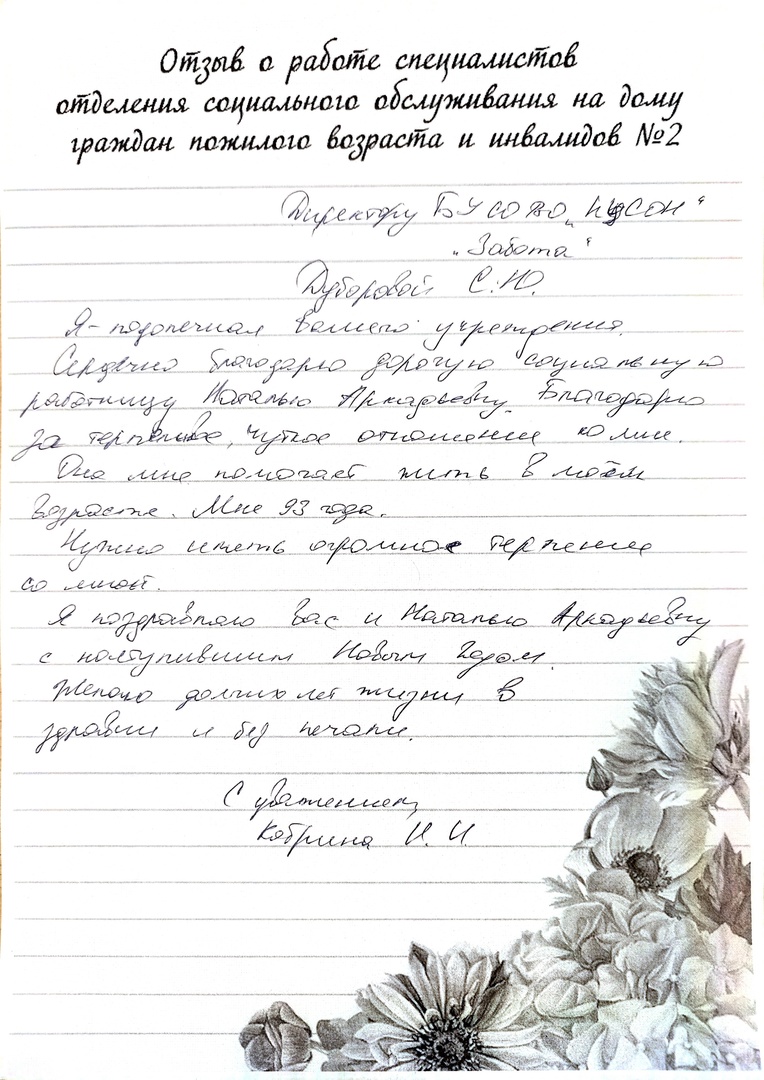 Отзыв о работе специалистов
отделения социального обслуживания на дому
граждан пожилого возраста и инвалидов №2
Директору БУСОВО „КЦСОН"
„Забота"
Дуборовой С.Ю.
Я - подопечная Вашего учреждения.
Сердечно благодарю дорогую социальную
работницу Наталью Аркадьевну. Благодарю
за терпеливое, чуткое отношение ко мне.
Она мне помогает жить в моём
возрасте. Мне 93 года.
Нужно иметь огромное терпение
со мной.
Я поздравляю Вас и Наталью Аркадьевну
с наступившим Новым Годом.
Желаю долгих лет жизни в
здравии и без печали.
С уважением,
Кабрина И. И.